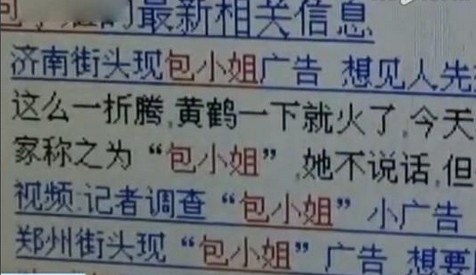 们最新相关信息
济南街头现包小姐广告 想见人先
这么一折腾,黄鹤一下就火了,今天
家称之为“包小姐”,她不说话,但
视频:记者调查“包小姐”小广告
郑州街头现“包小姐”广告 想要